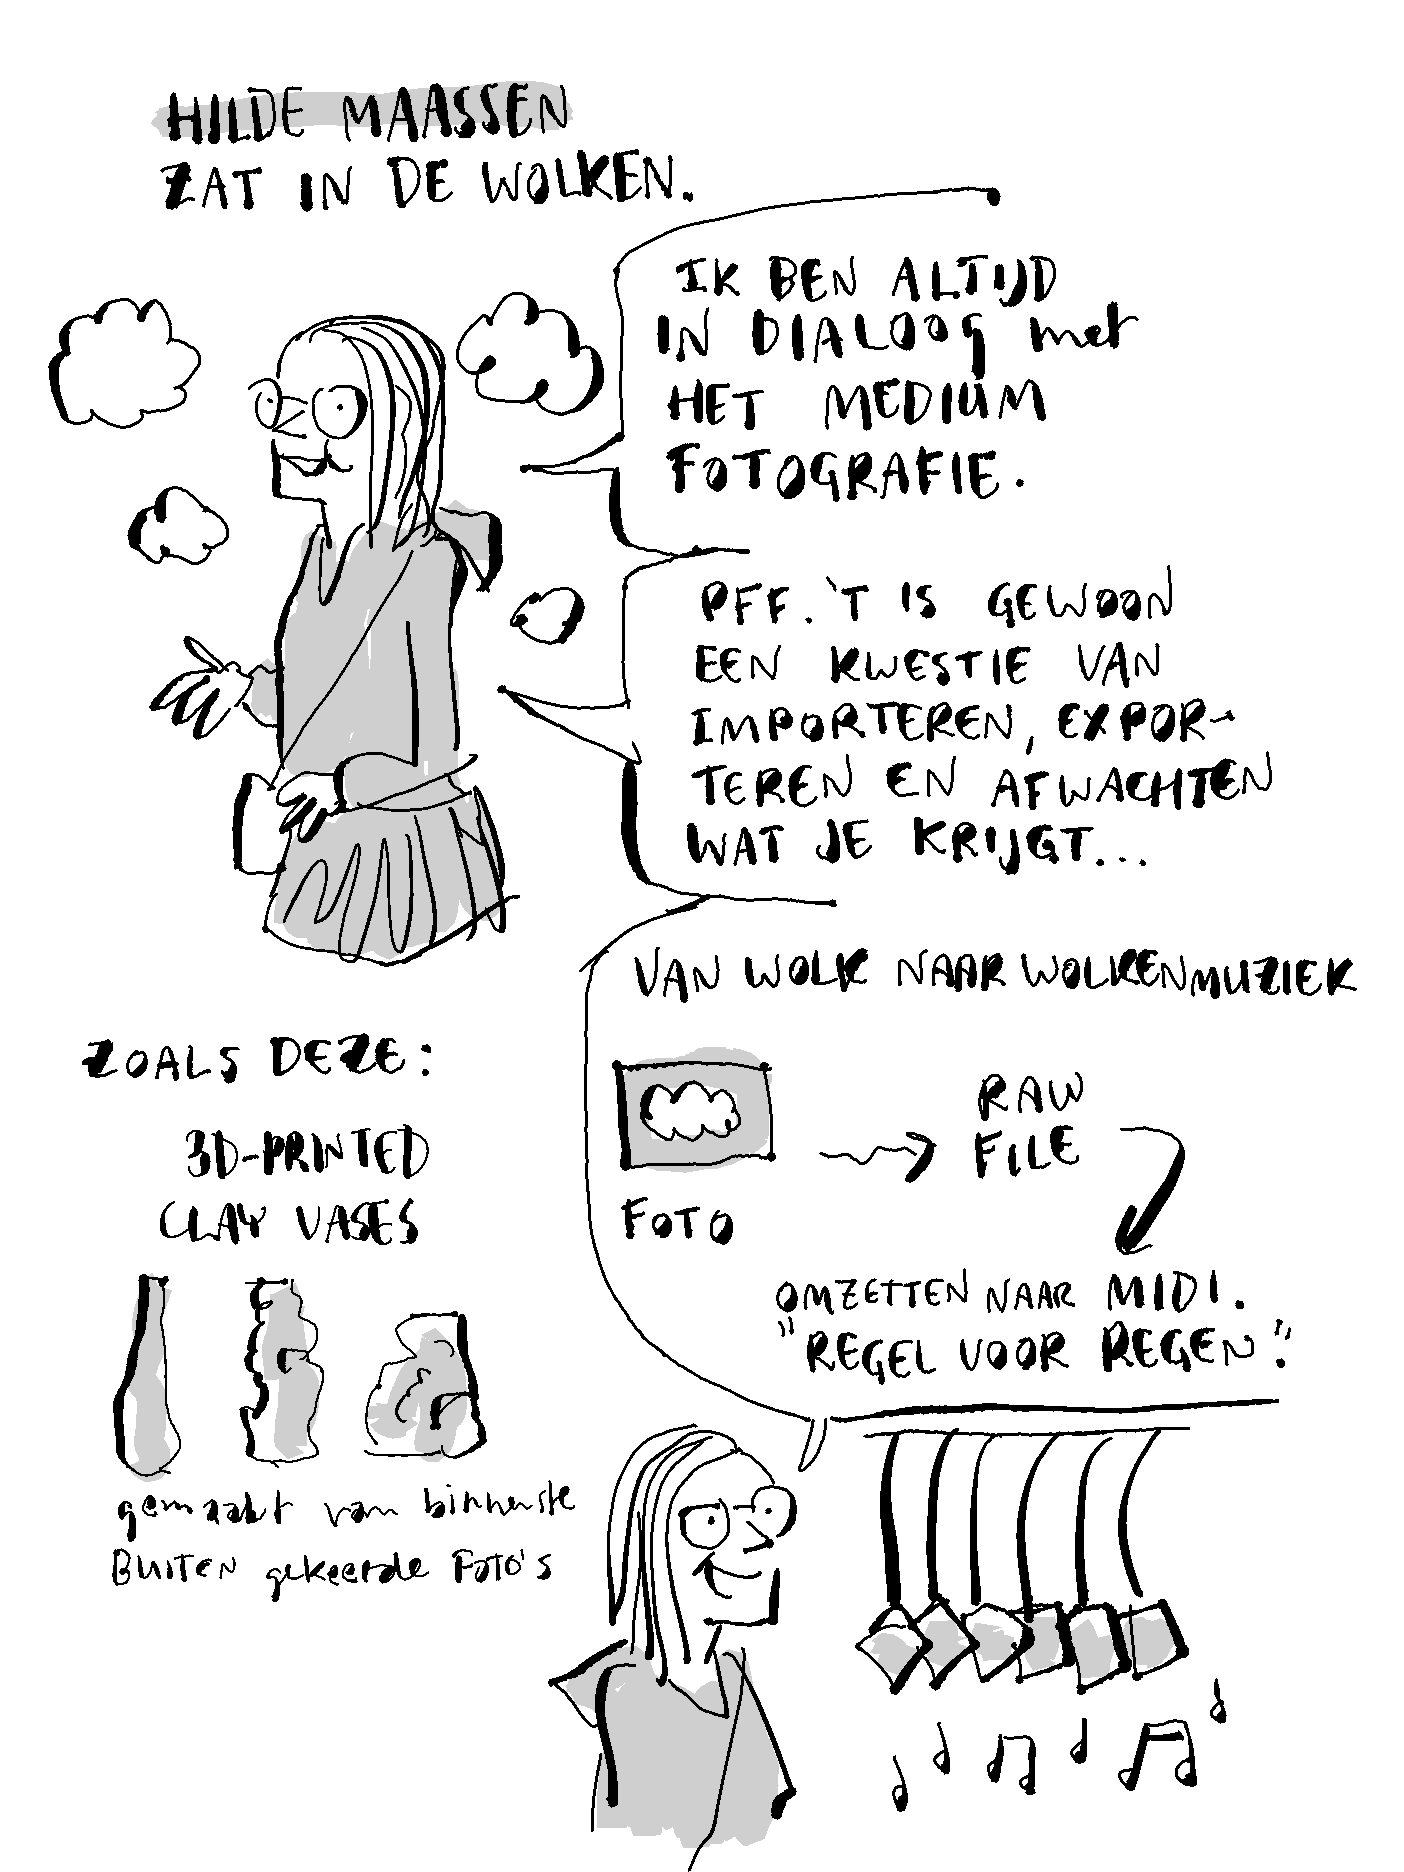 HILDE MAASSEN
ZAT IN DE WOLKEN.
IK BEN ALTIJD
IN DIALOOG met
HET MEDIUM
FOTOGRAFIE.
PFF. 'T IS GEWOON
EEN KWESTIE VAN
IMPORTEREN, EXPOR-
TEREN EN AFWACHTEN
WAT JE KRIJGT...
VAN WOLK NAAR WOLKENMUZIEK
FOTO
RAW
FILE
OMZETTEN NAAR MIDI.
"REGEL VOOR REGEN".
ZOALS DEZE:
3D-PRINTED
CLAY VASES
gemaakt van binnenste
BUITEN gekeerde FOTO'S